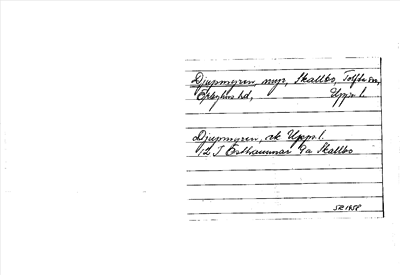 Djupmyren, myr, Skallbo, Tolfta sn,
Örbyhus hd, Upps. l.
Djupmyren, ek Upps. l.
12 I Östhammar 9a Skallbo